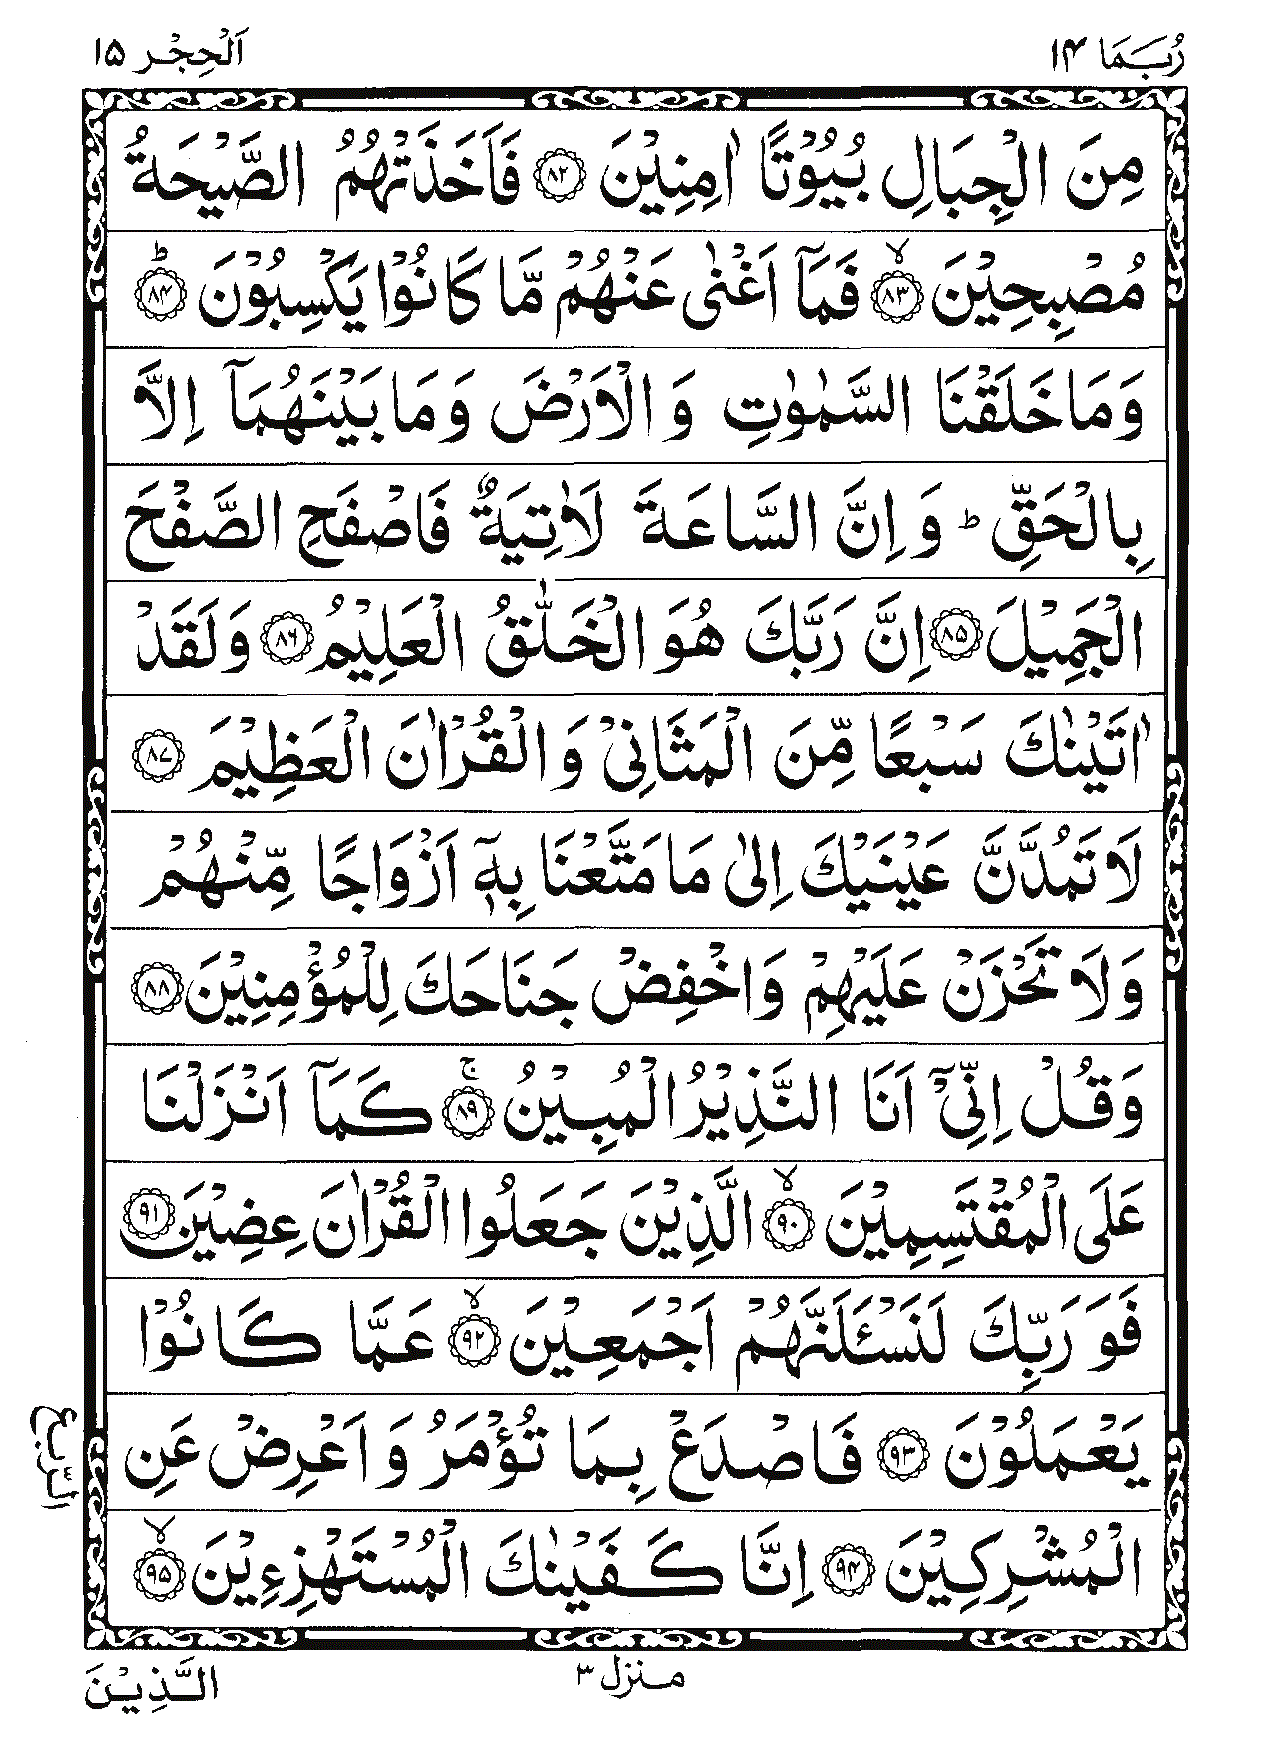 رُبَمَا ١٤
اَلْحِجْر ١٥
مِنَ الْجِبَالِ بُيُوْتًا اٰمِنِيْنَ ﴿٨٢﴾ فَاَخَذَتْهُمُ الصَّيْحَةُ
مُصْبِحِيْنَ ﴿٨٣﴾ۙ فَمَآ اَغْنٰى عَنْهُمْ مَّا كَانُوْا يَكْسِبُوْنَ ﴿٨٤﴾ؕ
وَمَا خَلَقْنَا السَّمٰوٰتِ وَالْاَرْضَ وَمَا بَيْنَهُمَآ اِلَّا
بِالْحَقِّ ؕ وَاِنَّ السَّاعَةَ لَاٰتِيَةٌ فَاصْفَحِ الصَّفْحَ
الْجَمِيْلَ ﴿٨٥﴾ اِنَّ رَبَّكَ هُوَ الْخَلّٰقُ الْعَلِيْمُ ﴿٨٦﴾ وَلَقَدْ
اٰتَيْنٰكَ سَبْعًا مِّنَ الْمَثَانِيْ وَالْقُرْاٰنَ الْعَظِيْمَ ﴿٨٧﴾
لَا تَمُدَّنَّ عَيْنَيْكَ اِلٰى مَا مَتَّعْنَا بِهٖٓ اَزْوَاجًا مِّنْهُمْ
وَلَا تَحْزَنْ عَلَيْهِمْ وَاخْفِضْ جَنَاحَكَ لِلْمُؤْمِنِيْنَ ﴿٨٨﴾
وَقُلْ اِنِّيْٓ اَنَا النَّذِيْرُ الْمُبِيْنُ ﴿٨٩﴾ۚ كَمَآ اَنْزَلْنَا
عَلَى الْمُقْتَسِمِيْنَ ﴿٩٠﴾ۙ الَّذِيْنَ جَعَلُوا الْقُرْاٰنَ عِضِيْنَ ﴿٩١﴾
فَوَرَبِّكَ لَنَسْـَٔلَنَّهُمْ اَجْمَعِيْنَ ﴿٩٢﴾ۙ عَمَّا كَانُوْا
يَعْمَلُوْنَ ﴿٩٣﴾ فَاصْدَعْ بِمَا تُؤْمَرُ وَاَعْرِضْ عَنِ
الرّبع
الْمُشْرِكِيْنَ ﴿٩٤﴾ اِنَّا كَفَيْنٰكَ الْمُسْتَهْزِءِيْنَ ﴿٩٥﴾ۙ
منزل ٣
الَّذِيْنَ